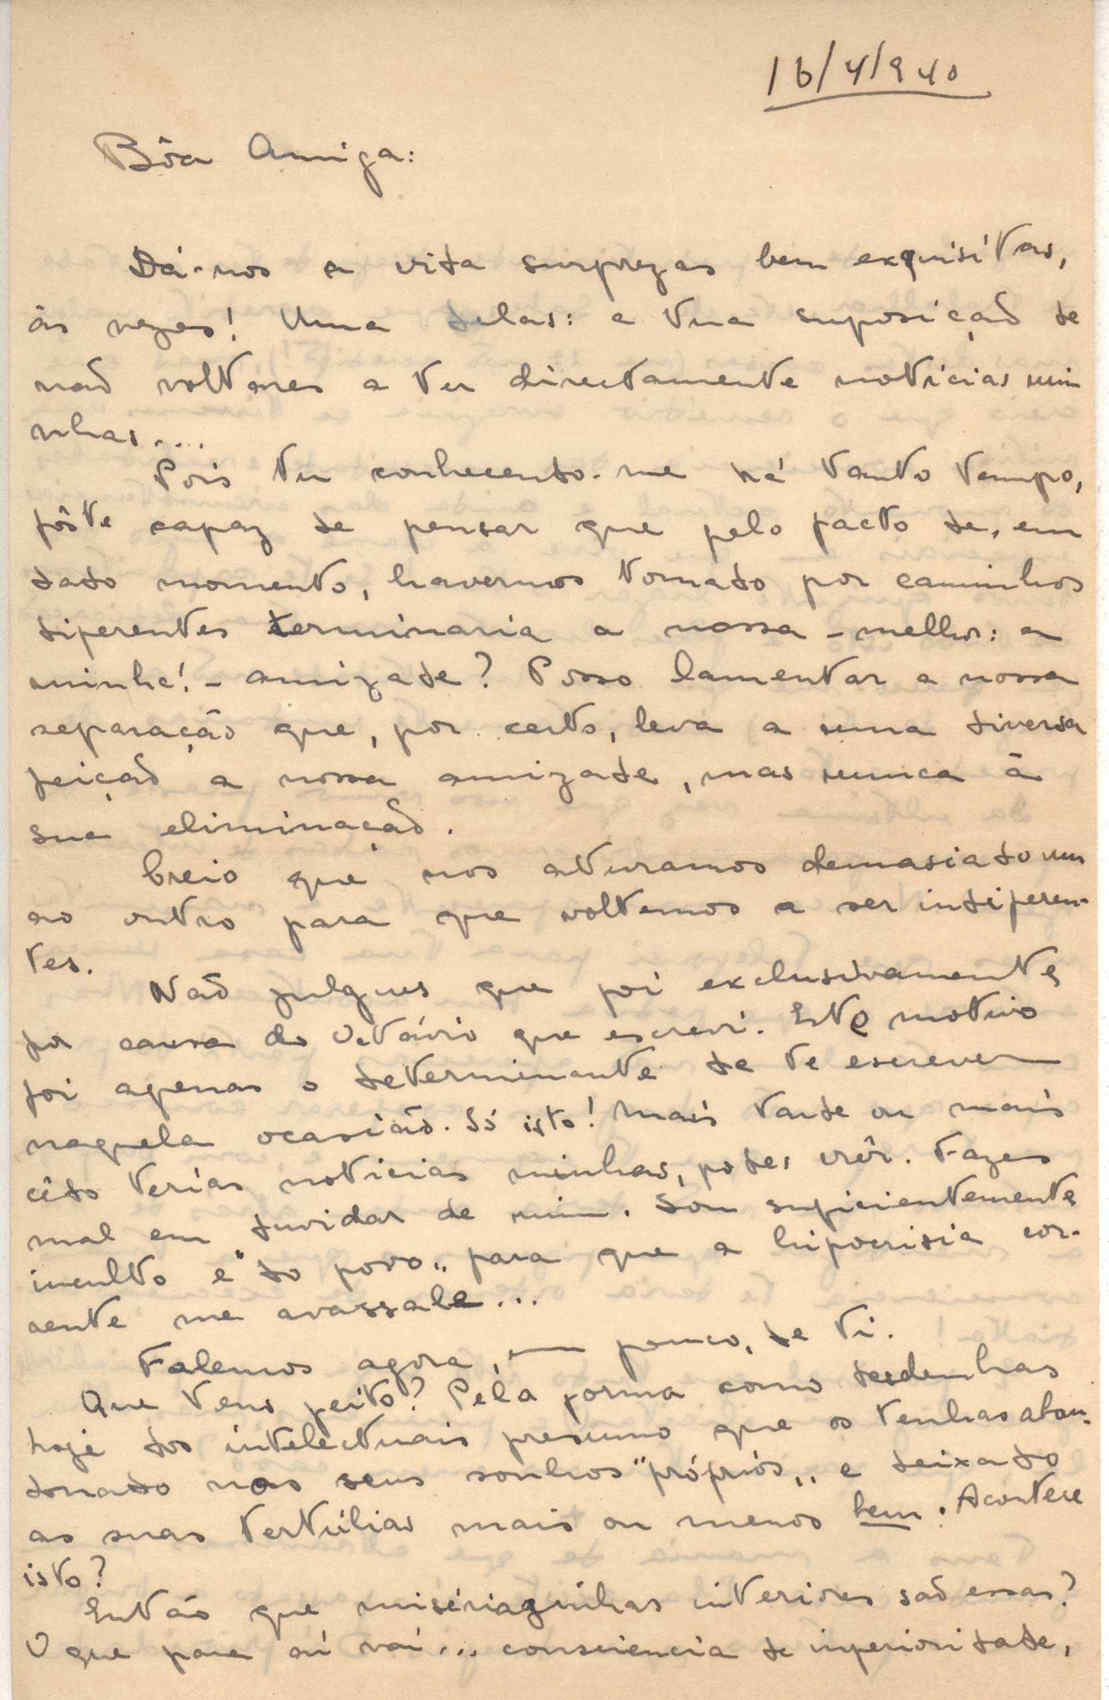 16/4/940
Bôa Amiga:
Dá-nos a vida surprezas bem exquisítas,
ás vezes! Uma delas: a tua suposição de
não voltares a ter directamente notícias mi
nhas....
Pois tu conhecendo-me há tanto tempo,
fôste capaz de pensar que pelo facto de, em
dado momento, havermos tomado por caminhos
diferentes terminaria a nossa - melhor: a
minha! - amizade? Posso lamentar a nossa
separação que, por certo, leva a uma diversa
feição a nossa amizade, mas nunca á
sua eliminação.
Creio que nos aturamos demasiado um
ao outro para que voltemos a ser indiferen-
tes.
Não julgues que foi exclusivamente
por causa do Octávio que escrevi. Este motivo
foi apenas o determinante de te escrever
naquela ocasião. Só isto! Mais tarde ou mais
cêdo terías noticias minhas, podes crêr. Fazes
mal em duvidar de mim. Sou suficientemente
inculto e "do povo" para que a hipocrisia cor-
rente me avassale...
Falemos agora, um pouco, de ti.
Que tens feito? Pela forma como desdenhas
hoje dos intelectuais presumo que os tenhas aban-
donado nos seus sonhos "próprios" e deixado
as suas tertúlias mais ou menos bem. Acontece
isto?
Então que misériazinhas interiores são essas?
O que para aí vai... consciencia de inferioridade,